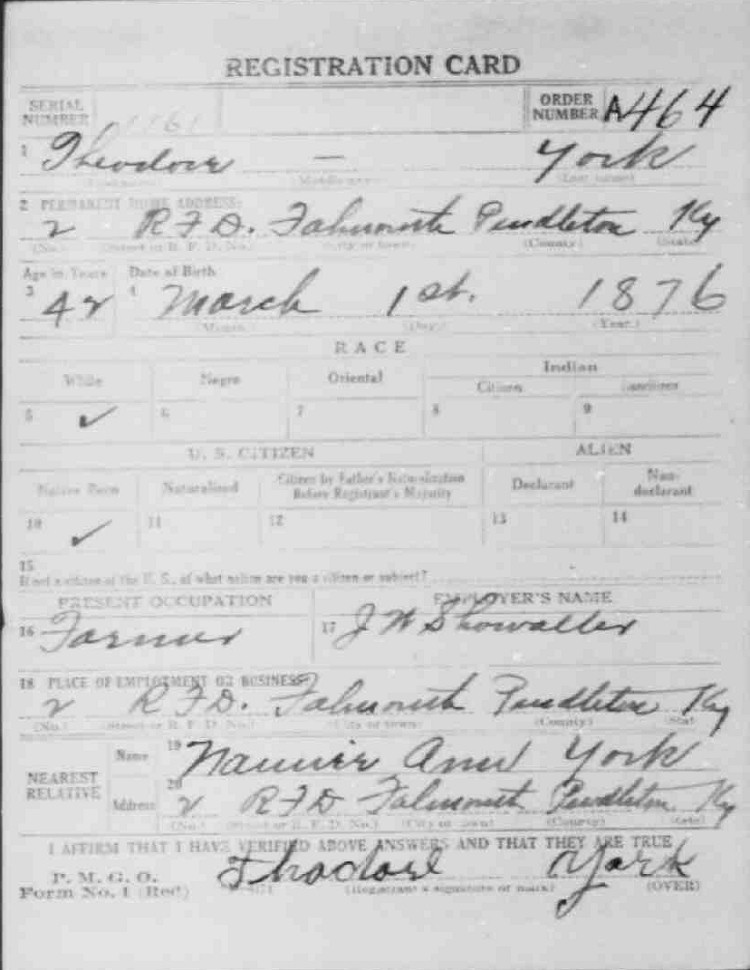 REGISTRATION CARD
SERIAL NUMBER 1161 ORDER NUMBER A464
1 Theodore — York
(Middle name) (Last name)
2 PERMANENT HOME ADDRESS:
2 R.F.D. Falmouth Pendleton Ky
(No.) (Street or R. F. D. No.) (City or town) (County) (State)
Age in Years Date of Birth
3 42 4 March 1st. 1876
(Month) (Day) (Year)
RACE
White Negro Oriental Indian
Citizen Noncitizen
5 ✓ 6 7 8 9
U. S. CITIZEN ALIEN
Native Born Naturalized Citizen by Father's Naturalization Before Registrant's Majority Declarant Non-declarant
10 ✓ 11 12 13 14
15
If not a citizen of the U. S., of what nation are you a citizen or subject?
PRESENT OCCUPATION EMPLOYER'S NAME
16 Farmer 17 J W Showalter
18 PLACE OF EMPLOYMENT OR BUSINESS
2 R.F.D. Falmouth Pendleton Ky
(No.) (Street or R. F. D. No.) (City or town) (County) (State)
NEAREST RELATIVE Name 19 Nannie Ann York
Address 20 2 RFD Falmouth Pendleton Ky
(No.) (Street or R. F. D. No.) (City or town) (County) (State)
I AFFIRM THAT I HAVE VERIFIED ABOVE ANSWERS AND THAT THEY ARE TRUE
P. M. G. O.
Form No. 1 (Red) Thadore York
(Registrant's signature or mark) (OVER)